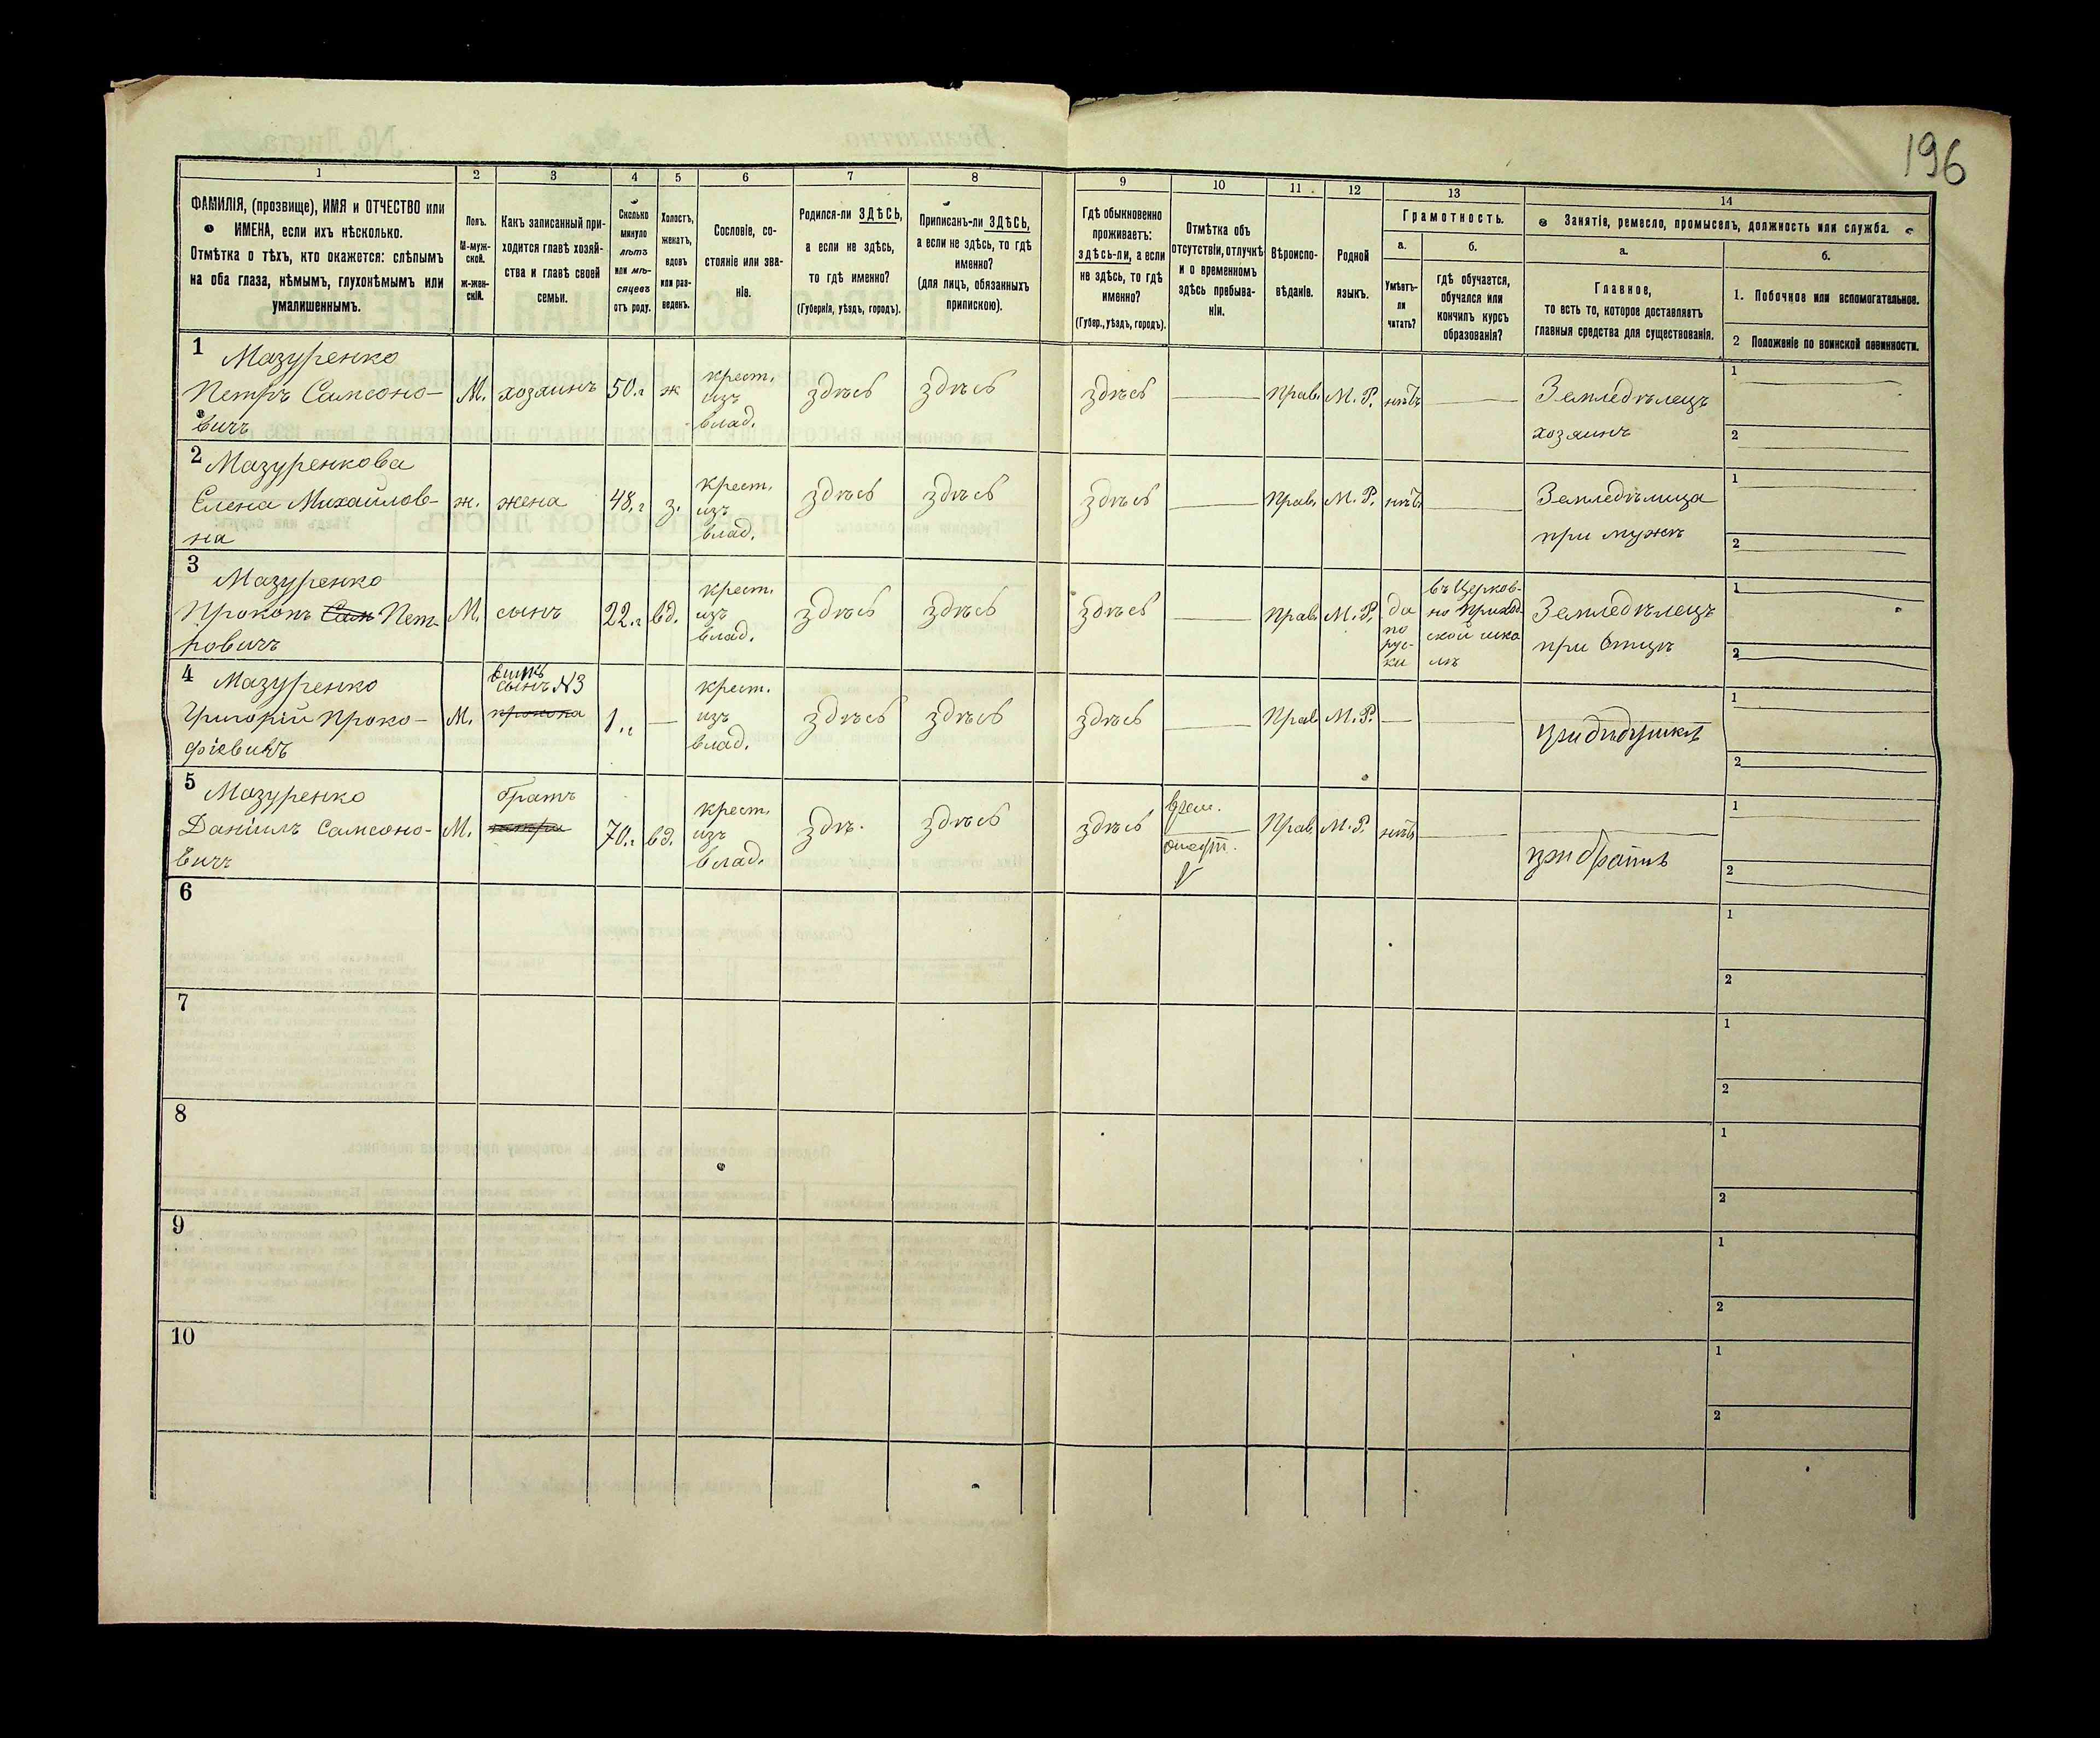 196
1 2 3 4 5 6 7 8 9 10 11 12 13 14
ФАМИЛІЯ, (прозвище), ИМЯ и ОТЧЕСТВО или
ИМЕНА, если ихъ нѣсколько.
Отмѣтка о тѣхъ, кто окажется: слѣпымъ
на оба глаза, нѣмымъ, глухонѣмымъ или
умалишеннымъ.
Полъ.
М-муж-
ской.
ж-жен-
скій.
Какъ записанный при-
ходится главѣ хозяй-
ства и главѣ своей
семьи.
Сколько
минуло
лѣтъ
или мѣ-
сяцевъ
отъ роду.
Холостъ,
женатъ,
вдовъ
или раз-
веденъ.
Сословіе, со-
стояніе или зва-
ніе.
Родился-ли ЗДѢСЬ,
а если не здѣсь,
то гдѣ именно?
(Губернія, уѣздъ, городъ).
Приписанъ-ли ЗДѢСЬ,
а если не здѣсь, то гдѣ
именно?
(для лицъ, обязанныхъ
припискою).
Гдѣ обыкновенно
проживаетъ:
здѣсь-ли, а если
не здѣсь, то гдѣ
именно?
(Губер., уѣздъ, городъ).
Отмѣтка объ
отсутствіи, отлучкѣ
и о временномъ
здѣсь пребыва-
ніи.
Вѣроиспо-
вѣданіе.
Родной
языкъ.
Грамотность.
а.
Умѣетъ-
ли
читать?
б.
гдѣ обучается,
обучался или
кончилъ курсъ
образованія?
Занятія, ремесло, промыселъ, должность или служба.
а.
Главное,
то есть то, которое доставляетъ
главныя средства для существованія.
б.
1. Побочное или вспомогательное.
2 Положеніе по воинской повинности.
1
Мазуренко
Петръ Самсоно-
вичъ
М.
хозяинъ
50.г
ж
крест.
изъ
влад.
здѣсь
здѣсь
здѣсь
Прав.
М. Р.
нѣтъ
Земледѣлецъ
хозяинъ
1
2
2
Мазуренкова
Елена Михайлов-
на
ж.
жена
48.г
з.
крест.
изъ
влад.
здѣсь
здѣсь
здѣсь
Прав.
М. Р.
нѣтъ
Земледѣлица
при мужѣ
1
2
3
Мазуренко
Прокопъ Сам Пет-
ровичъ
М.
сынъ
22.г
вд.
крест.
изъ
влад.
здѣсь
здѣсь
здѣсь
Прав.
М. Р.
да
по
рус-
ки
въ Церков-
но приход-
ской шко
лѣ
Земледѣлецъ
при Отцѣ
1
2
4
Мазуренко
Григорій Проко-
фіевичъ
М.
внукъ
сынъ N3
прокопа
1.г
крест.
изъ
влад.
здѣсь
здѣсь
здѣсь
Прав.
М. Р.
при дѣдушкѣ
1
2
5
Мазуренко
Даніилъ Самсоно-
вичъ
М.
братъ
70.г
вд.
крест.
изъ
влад.
здѣ.
здѣсь
здѣсь
врем.
Прав.
М. Р.
нѣтъ
при братѣ
1
2
6
1
2
7
1
2
8
1
2
9
1
2
10
1
2